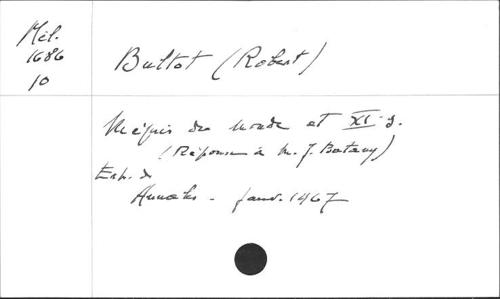 Mél.
1686
10
Bultot (Robert)
Mépris du monde et XIe s.
(Réponse à M. J. Batany)
Extr. de
Annales - janv. 1967